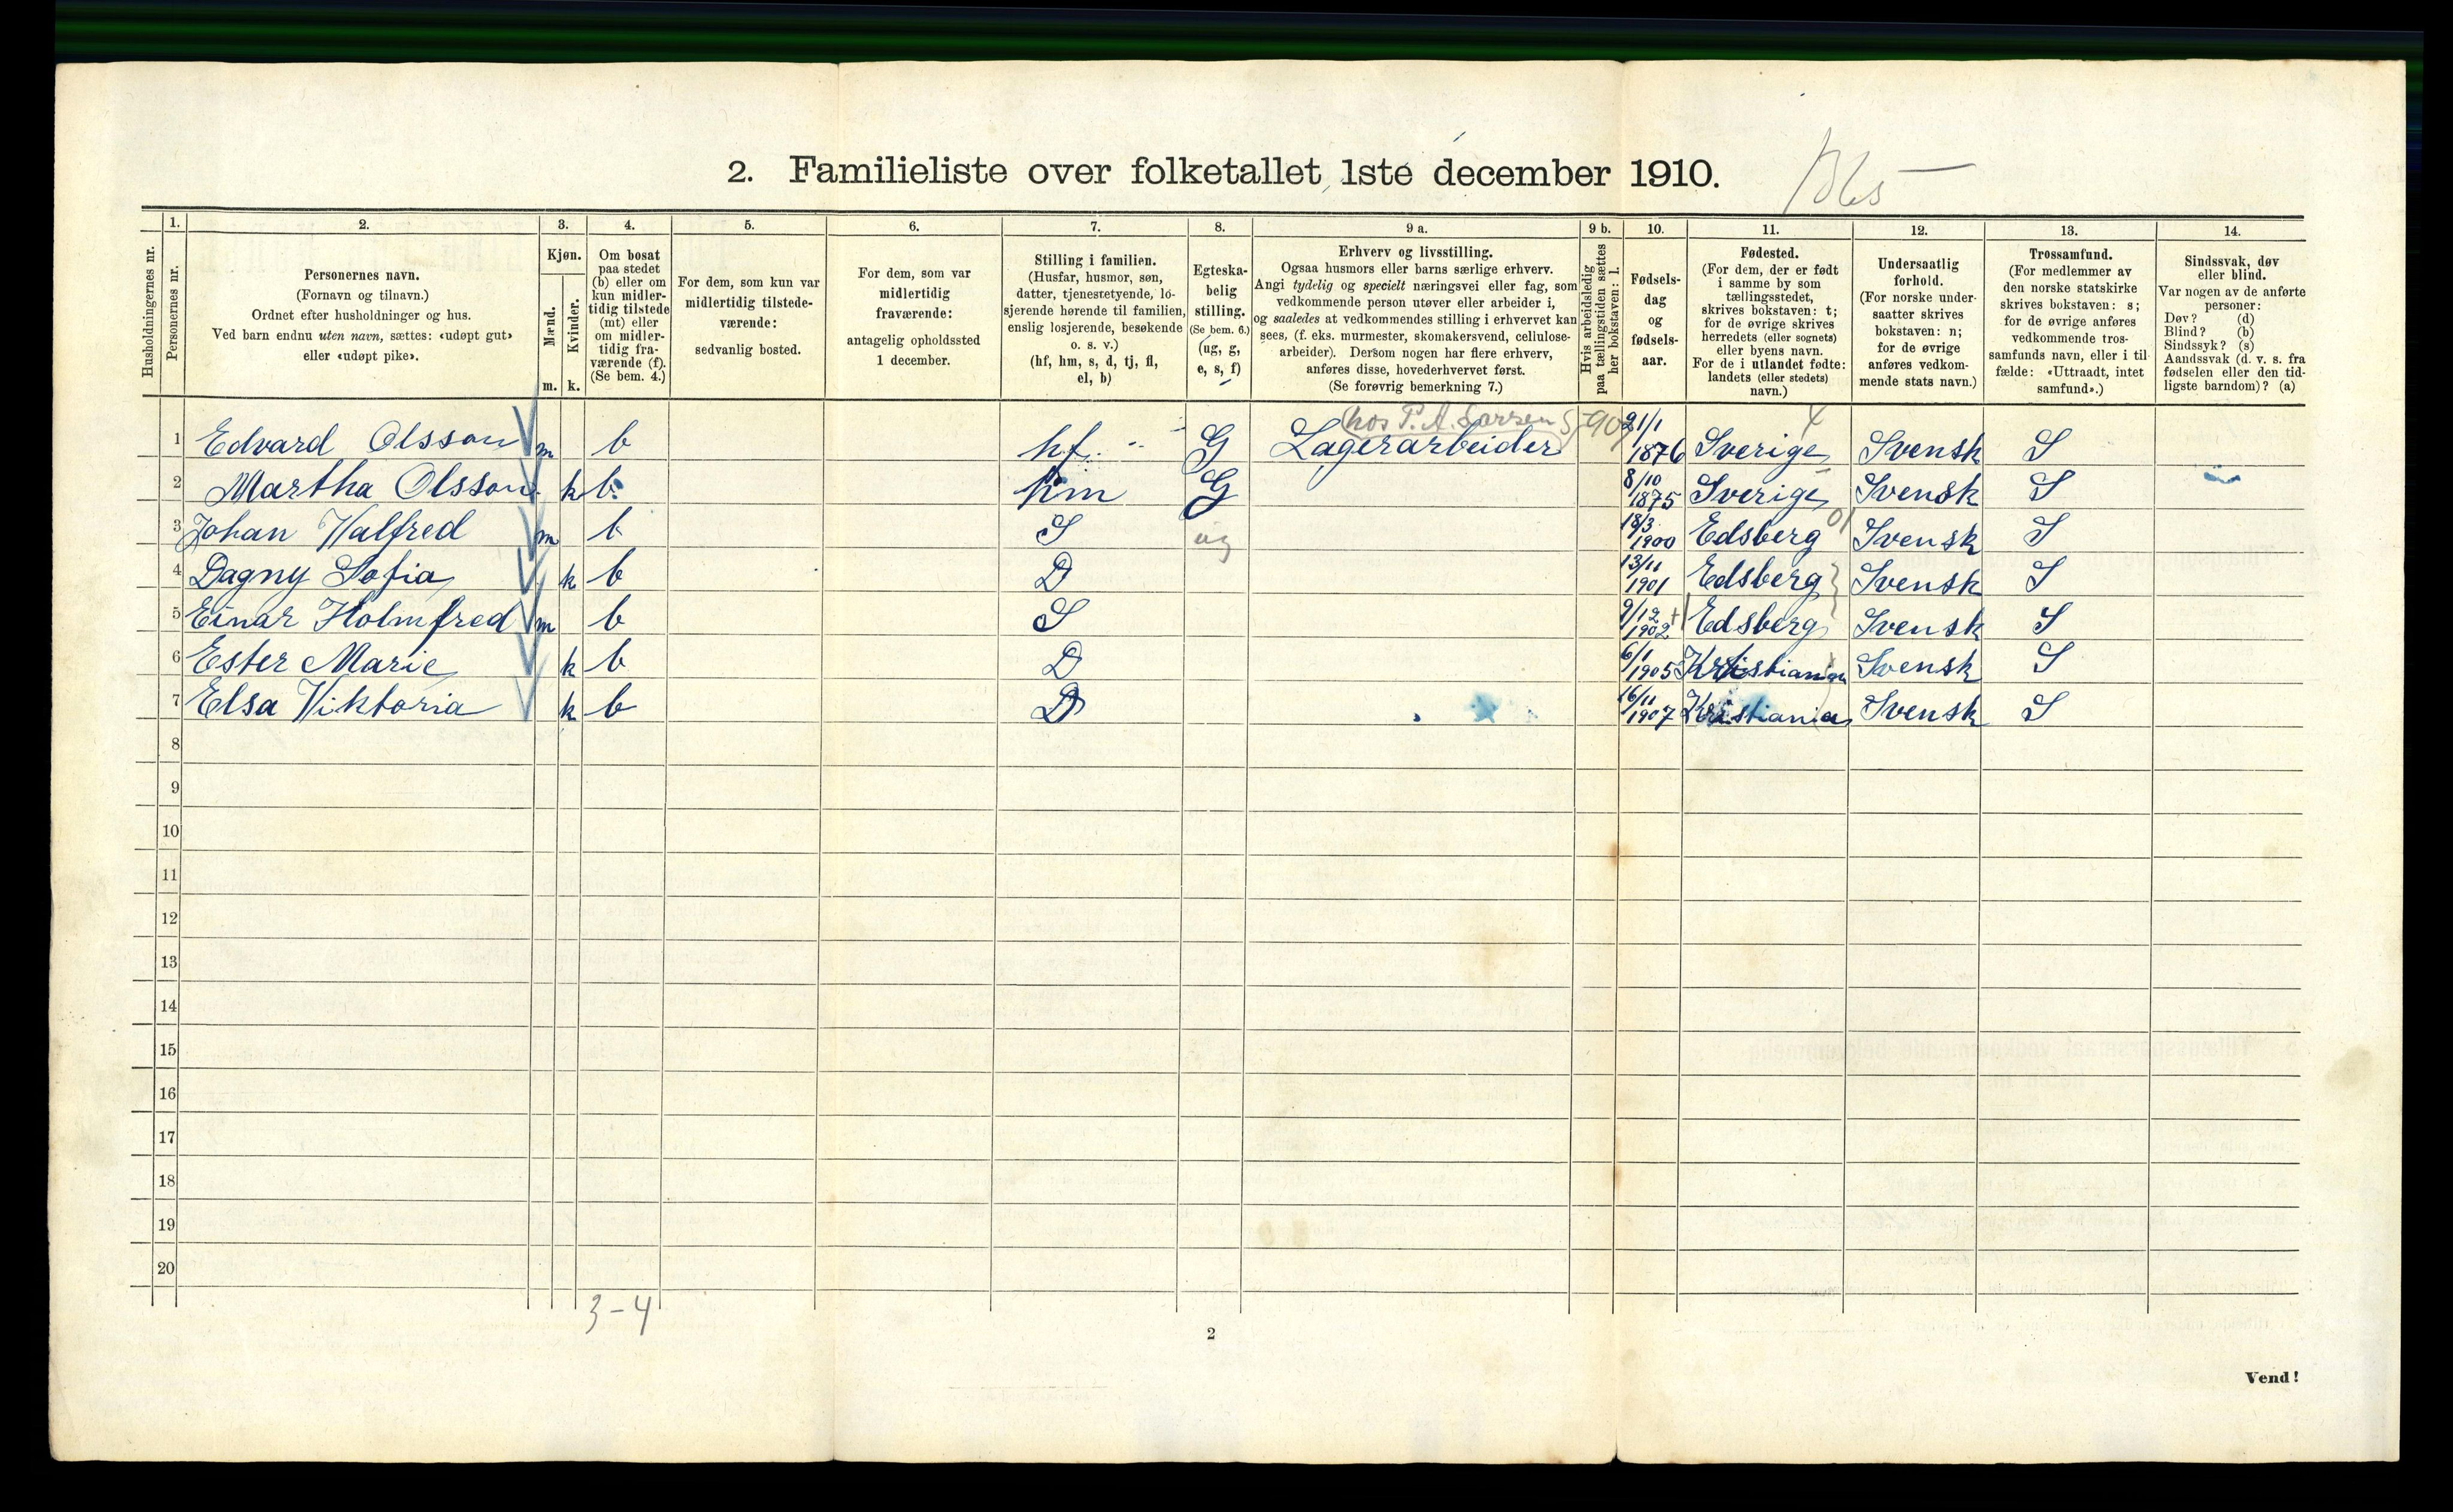 2. Familieliste over folketallet 1ste december 1910.
1. 2. 3. 4. 5. 6. 7. 8. 9 a. 9 b. 10. 11. 12. 13. 14.
Husholdningernes nr.
Personernes nr.
Personernes navn.
(Fornavn og tilnavn.)
Ordnet efter husholdninger og hus.
Ved barn endnu uten navn, sættes: «udøpt gut»
eller «udøpt pike».
Kjøn.
Mænd.
Kvinder.
m. k.
Om bosat
paa stedet
(b) eller om
kun midler-
tidig tilstede
(mt) eller
om midler-
tidig fra-
værende (f).
(Se bem. 4.)
For dem, som kun var
midlertidig tilstede-
værende:
sedvanlig bosted.
For dem, som var
midlertidig
fraværende:
antagelig opholdssted
1 december.
Stilling i familien.
(Husfar, husmor, søn,
datter, tjenestetyende, lo-
sjerende hørende til familien,
enslig losjerende, besøkende
o. s. v.)
(hf, hm, s, d, tj, fl,
el, b)
Egteska-
belig
stilling.
(Se bem. 6.)
(ug, g,
e, s, f)
Erhverv og livsstilling.
Ogsaa husmors eller barns særlige erhverv.
Angi tydelig og specielt næringsvei eller fag, som
vedkommende person utøver eller arbeider i,
og saaledes at vedkommendes stilling i erhvervet kan
sees, (f. eks. murmester, skomakersvend, cellulose-
arbeider). Dersom nogen har flere erhverv,
anføres disse, hovederhvervet først.
(Se forøvrig bemerkning 7.)
Hvis arbeidsledig
paa tællingstiden sættes
her bokstaven: l.
Fødsels-
dag
og
fødsels-
aar.
Fødested.
(For dem, der er født
i samme by som
tællingsstedet,
skrives bokstaven: t;
for de øvrige skrives
herredets (eller sognets)
eller byens navn.
For de i utlandet fødte:
landets (eller stedets)
navn.)
Undersaatlig
forhold.
(For norske under-
saatter skrives
bokstaven: n;
for de øvrige
anføres vedkom-
mende stats navn.)
Trossamfund.
(For medlemmer av
den norske statskirke
skrives bokstaven: s;
for de øvrige anføres
vedkommende tros-
samfunds navn, eller i til-
fælde: «Uttraadt, intet
samfund».)
Sindssvak, døv
eller blind.
Var nogen av de anførte
personer:
Døv? (d)
Blind? (b)
Sindssyk? (s)
Aandssvak (d. v. s. fra
fødselen eller den tid-
ligste barndom)? (a)
hos P. A. Larsen
1 Edvard Olsson m b hf. G Lagerarbeider 21/1 1876 Sverige Svensk S
2 Martha Olsson k b hm G 8/10 1875 Sverige Svensk S
3 Johan Valfred m b S ug 18/3 1900 Edsberg Svensk S
4 Dagny Sofia k b D 13/11 1901 Edsberg Svensk S
5 Einar Holmfred m b S 9/12 1902 Edsberg Svensk S
6 Ester Marie k b D 6/1 1905 Kristiania Svensk S
7 Elsa Viktoria k b D 16/11 1907 Kristiania Svensk S
8
9
10
11
12
13
14
15
16
17
18
19
20
3-4
2
Vend!